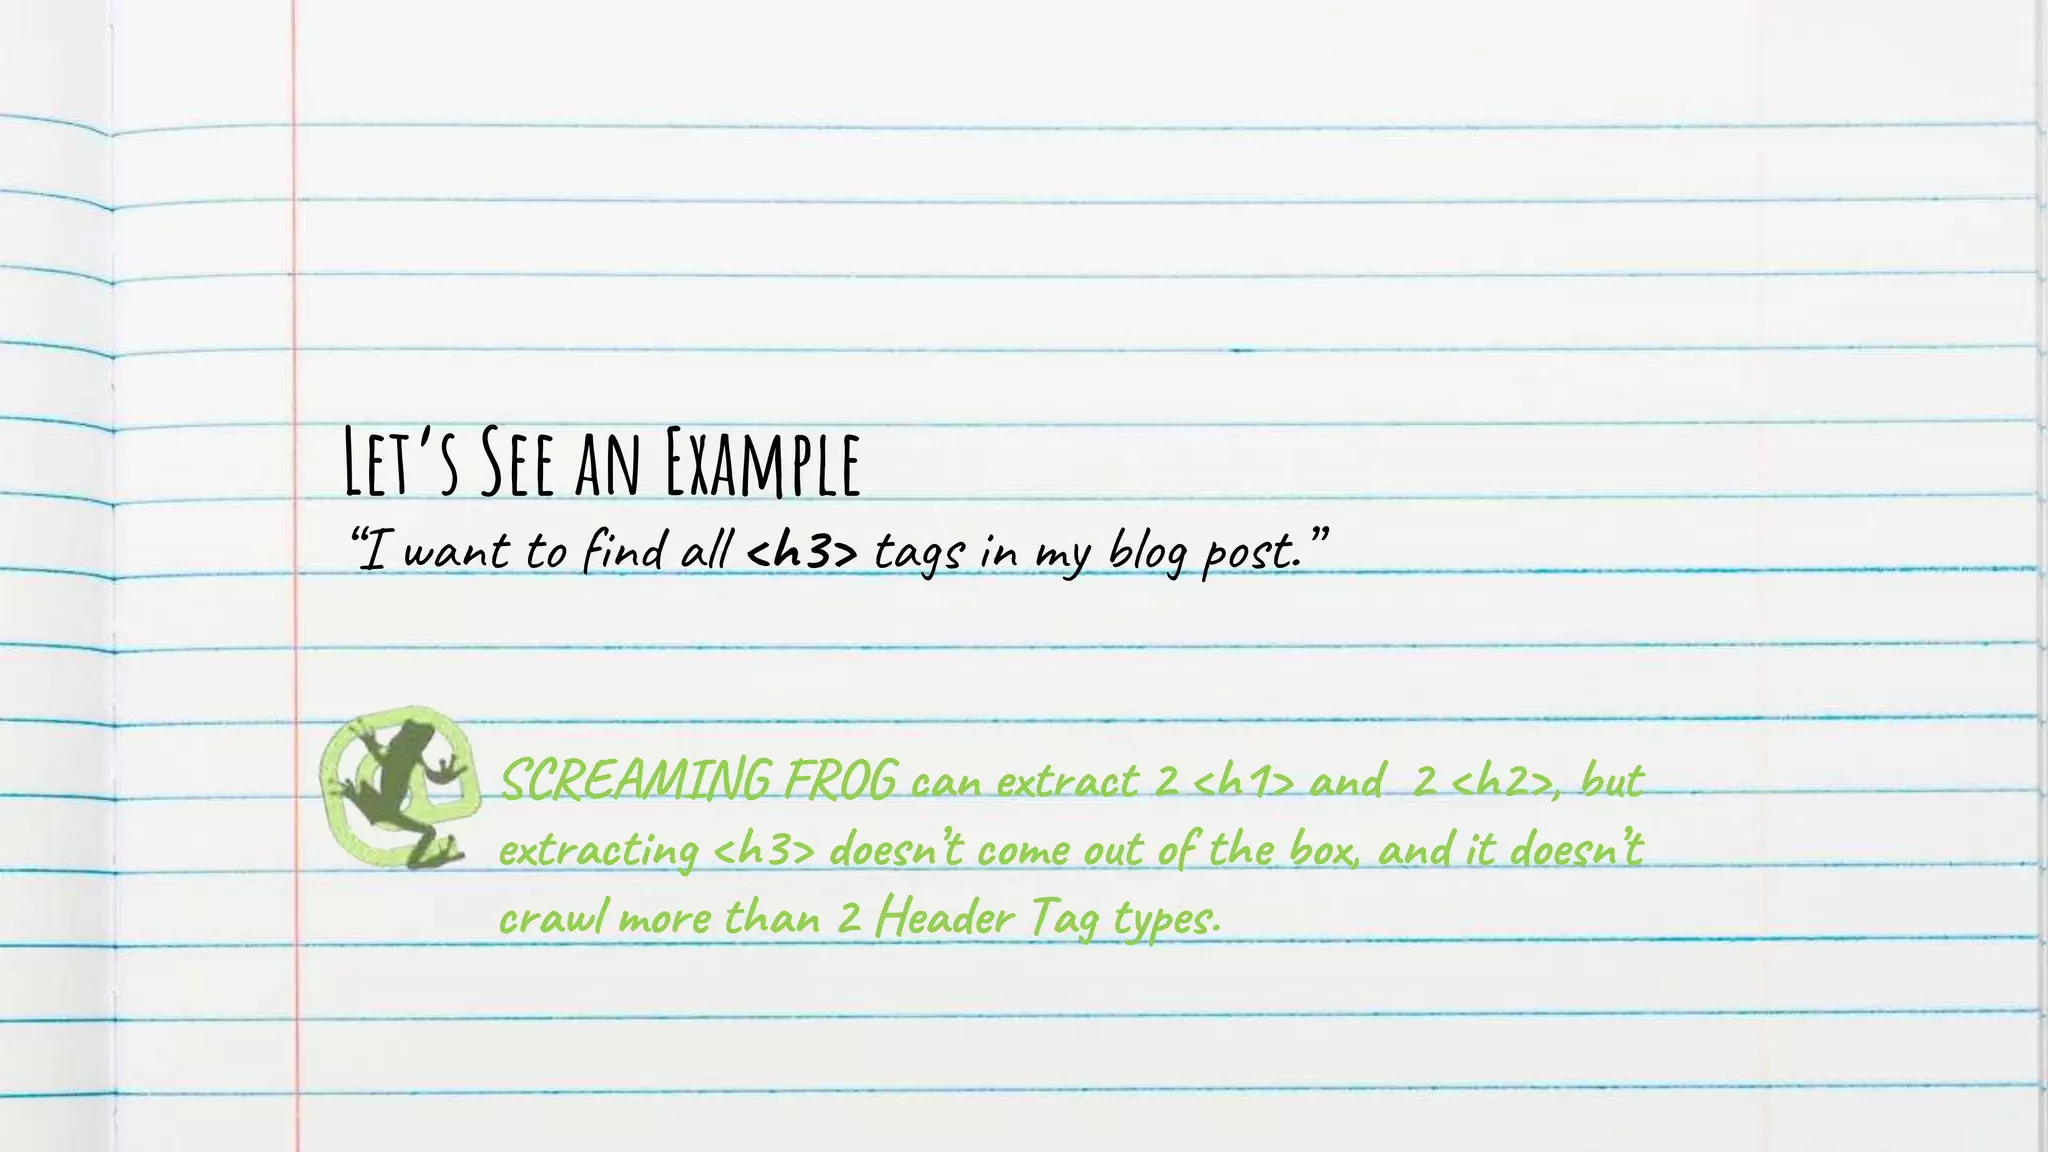 Let's See an Example
“I want to find all <h3> tags in my blog post.”
SCREAMING FROG can extract 2 <h1> and 2 <h2>, but
extracting <h3> doesn’t come out of the box, and it doesn’t
crawl more than 2 Header Tag types.